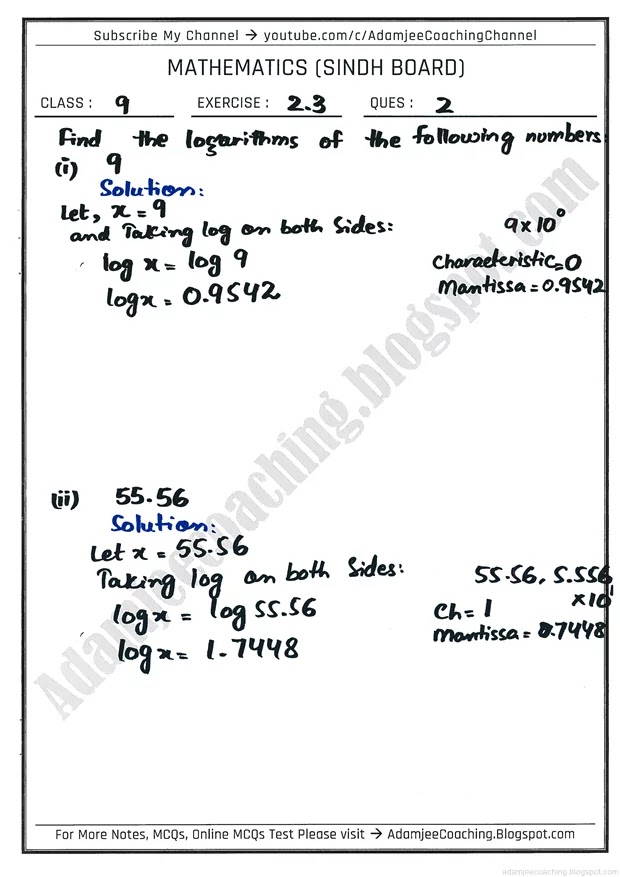 Subscribe My Channel → youtube.com/c/AdamjeeCoachingChannel
MATHEMATICS (SINDH BOARD)
CLASS : 9 EXERCISE : 2.3 QUES : 2
Find the logarithms of the following numbers:
(i) 9
Solution:
Let, x = 9
and Taking log on both Sides: 9 x 10⁰
log x = log 9 Characteristic = 0
log x = 0.9542 Mantissa = 0.9542
(ii) 55.56
Solution:
Let x = 55.56
Taking log on both Sides: 55.56, 5.556
x 10¹
log x = log 55.56 Ch = 1
log x = 1.7448 Mantissa = 0.7448
Adamjeecoaching.blogspot.com
For More Notes, MCQs, Online MCQs Test Please visit → AdamjeeCoaching.Blogspot.com
adamjeecoaching.blogspot.com